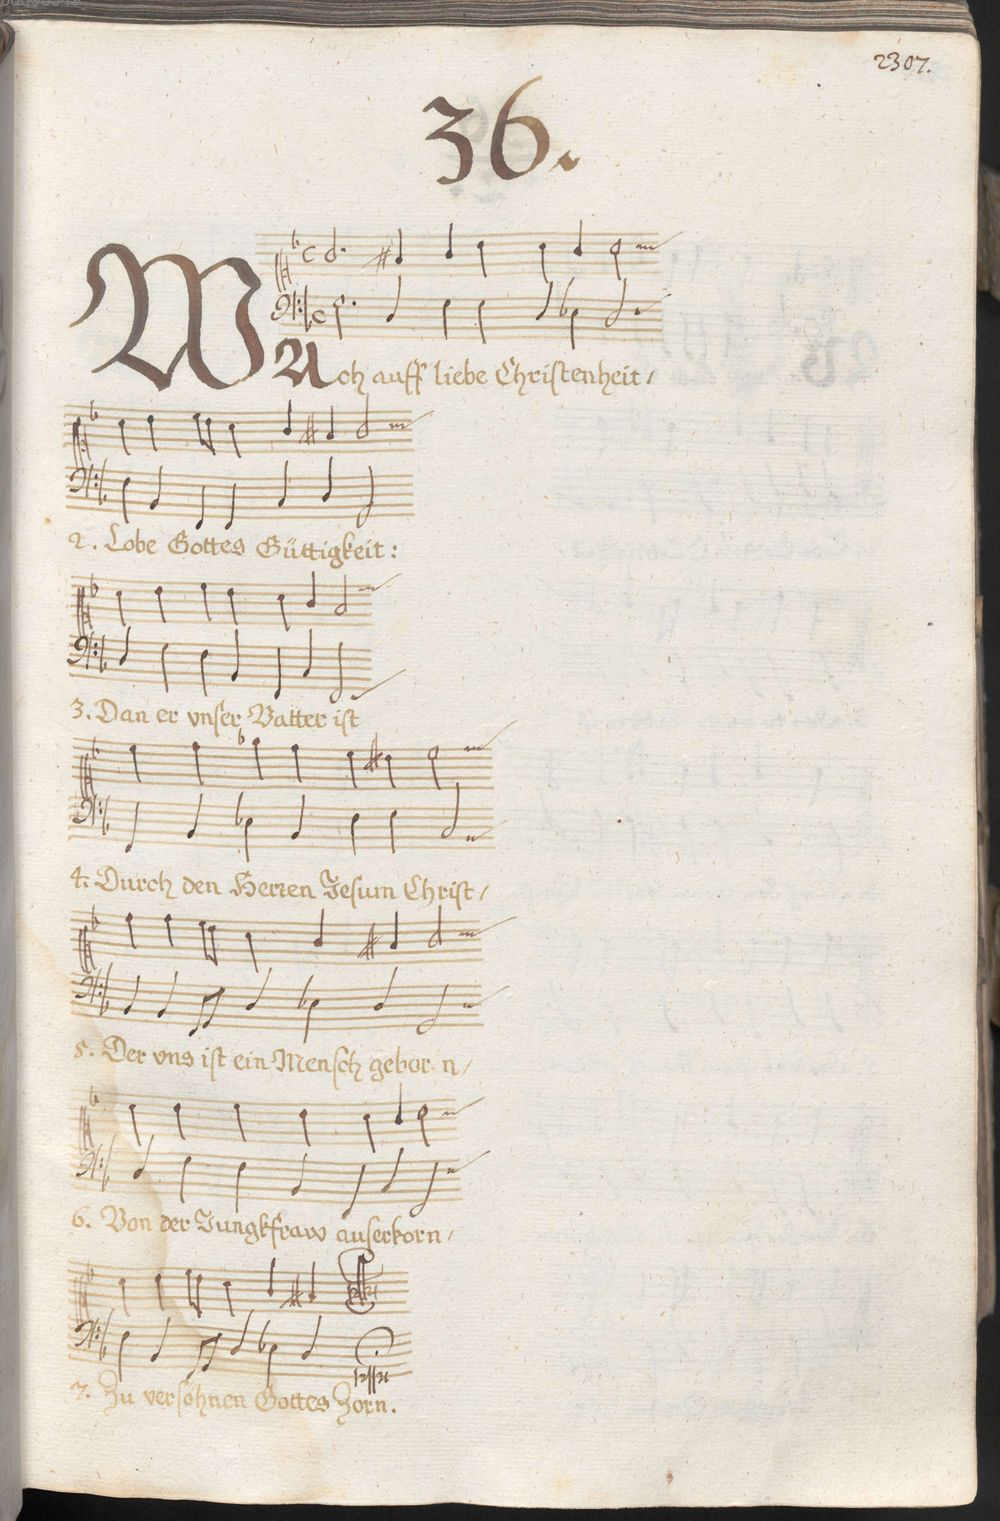 2307.
36.
WAch auff liebe Christenheit/
2. Lobe Gottes Güttigkeit:
3. Dan er vnser Vatter ist
4. Durch den Herren Jesum Christ/
5. Der vns ist ein Mensch gebor n/
6. Von der Jungkfraw auserkorn/
7. Zu versöhnen Gottes Zorn.